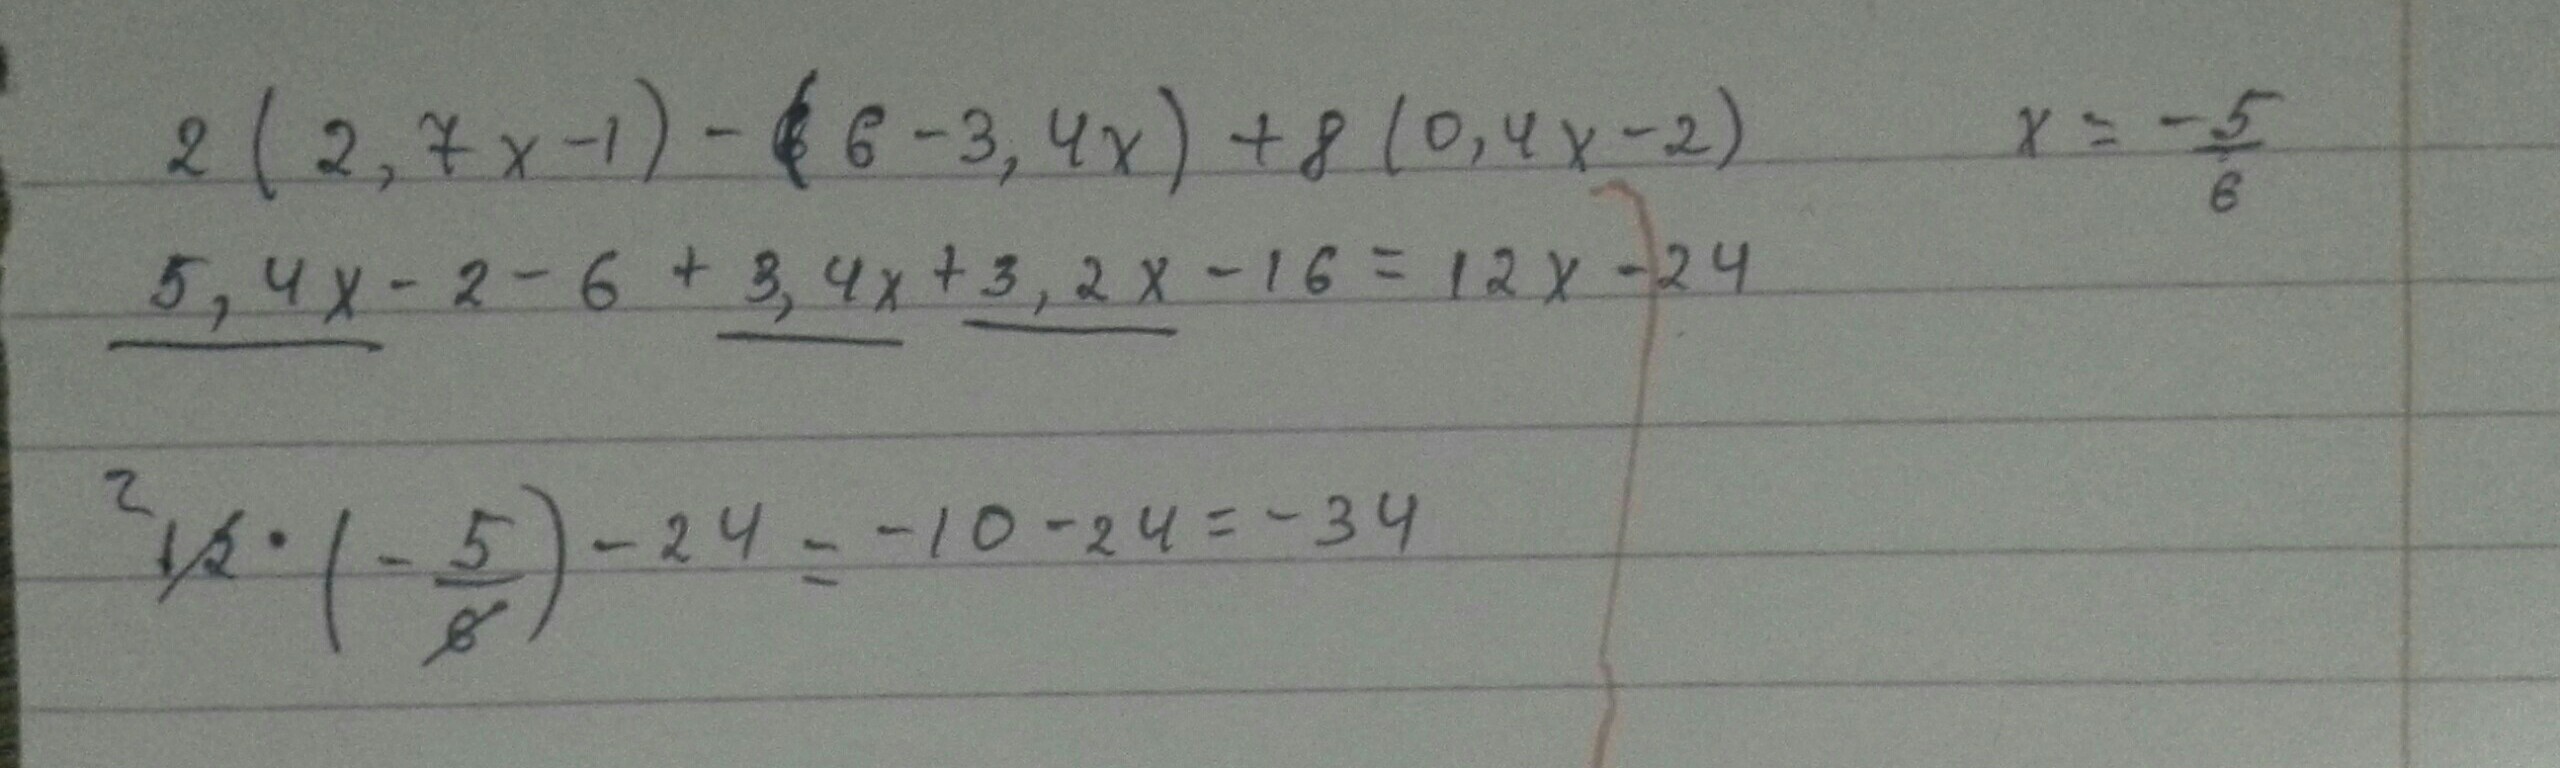 2(2,7x-1)-(6-3,4x)+8(0,4x-2) x=-5/6
5,4x-2-6+3,4x+3,2x-16=12x-24
2
12·(-5/6)-24=-10-24=-34